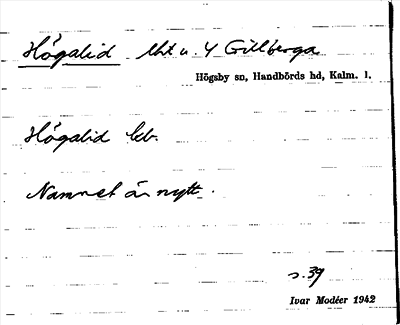 Högalid lht u. 4 Gillberga
Högsby sn, Handbörds hd, Kalm. l.
Högalid beb.
Namnet är nytt.
s. 39
Ivar Modéer 1942